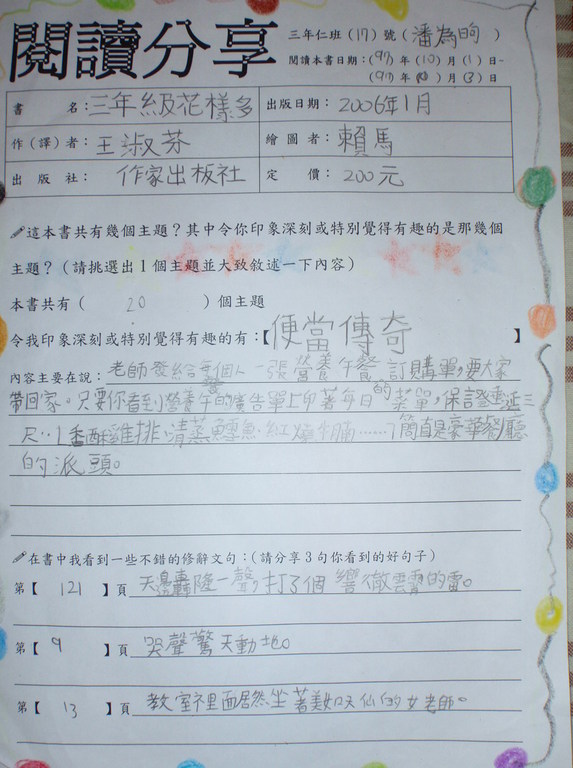 閱讀分享
三年仁班（17）號（潘為昀）
閱讀本書日期：（97）年（10）月（1）日-
（97）年（10）月（3）日
書名：三年級花樣多 出版日期：2006年1月
作（譯）者：王淑芬 繪圖者：賴馬
出版社：作家出版社 定價：200元
這本書共有幾個主題？其中令你印象深刻或特別覺得有趣的是那幾個
主題？（請挑選出1個主題並大致敘述一下內容）
本書共有（ 20 ）個主題
令我印象深刻或特別覺得有趣的有：【便當傳奇】
內容主要在說：老師發給每個人一張營養午餐訂購單，要大家
帶回家。只要你看到營養午的廣告單上印著每日的菜單，保證垂涎三
尺…香酥雞排、清蒸鱈魚、紅燒牛腩……簡直是豪華餐廳
的派頭。
在書中我看到一些不錯的修辭文句：（請分享3句你看到的好句子）
第【 121 】頁 天邊轟隆一聲，打了個響徹雲霄的雷。
第【 9 】頁 哭聲驚天動地。
第【 13 】頁 教室裡面居然坐著美如天仙的女老師。